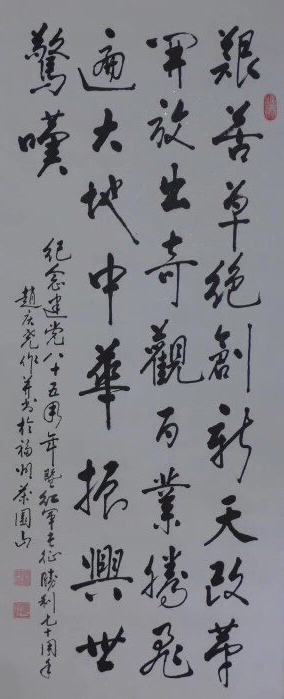 艱苦草絕創新天改革
開放出奇觀百業騰飛
遍大地中華振興世
驚嘆
紀念建党八十五周年暨紅軍長征勝利七十周年
趙慶堯作并书於福州葉園山